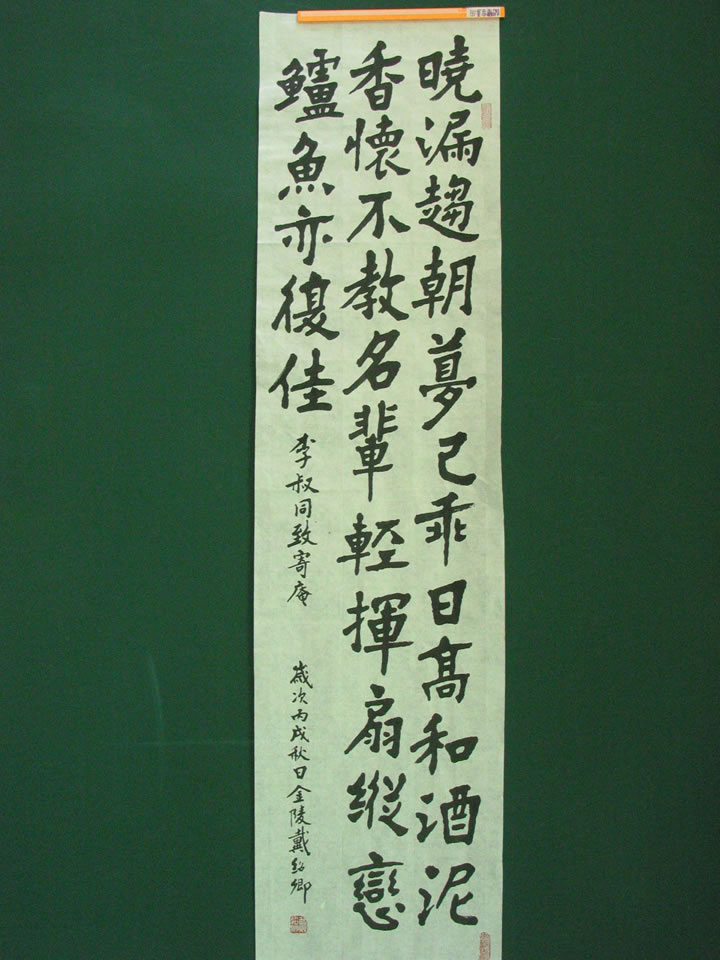 曉漏趨朝夢已乖日高和酒泥
香懷不教名輩輕揮扇縱戀
鱸魚亦復佳
李叔同致寄庵
歲次丙戌秋日金陵戴紹卿